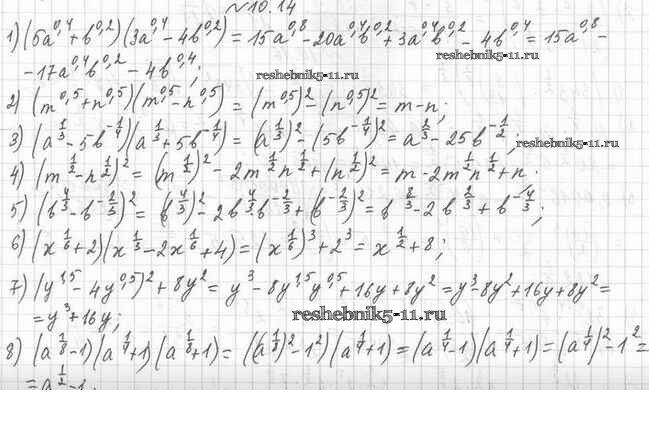 №10.14
1) (5a^0,4 + b^0,2)(3a^0,4 - 4b^0,2) = 15a^0,8 - 20a^0,4b^0,2 + 3a^0,4b^0,2 - 4b^0,4 = 15a^0,8 -
- 17a^0,4b^0,2 - 4b^0,4;
reshebnik5-11.ru
reshebnik5-11.ru
2) (m^0,5 + n^0,5)(m^0,5 - n^0,5) = (m^0,5)^2 - (n^0,5)^2 = m - n;
3) (a^1/3 - 5b^-1/4)(a^1/3 + 5b^-1/4) = (a^1/3)^2 - (5b^-1/4)^2 = a^2/3 - 25b^-1/2;
reshebnik5-11.ru
4) (m^1/2 - n^1/2)^2 = (m^1/2)^2 - 2m^1/2n^1/2 + (n^1/2)^2 = m - 2m^1/2n^1/2 + n.
5) (b^4/3 - b^-2/3)^2 = (b^4/3)^2 - 2b^4/3b^-2/3 + (b^-2/3)^2 = b^8/3 - 2b^2/3 + b^-4/3;
6) (x^1/6 + 2)(x^1/3 - 2x^1/6 + 4) = (x^1/6)^3 + 2^3 = x^1/2 + 8;
7) (y^1,5 - 4y^0,5)^2 + 8y^2 = y^3 - 8y^1,5y^0,5 + 16y + 8y^2 = y^3 - 8y^2 + 16y + 8y^2 =
= y^3 + 16y;
reshebnik5-11.ru
8) (a^1/8 - 1)(a^1/4 + 1)(a^1/8 + 1) = ((a^1/8)^2 - 1^2)(a^1/4 + 1) = (a^1/4 - 1)(a^1/4 + 1) = (a^1/4)^2 - 1^2 =
= a^1/2 - 1.